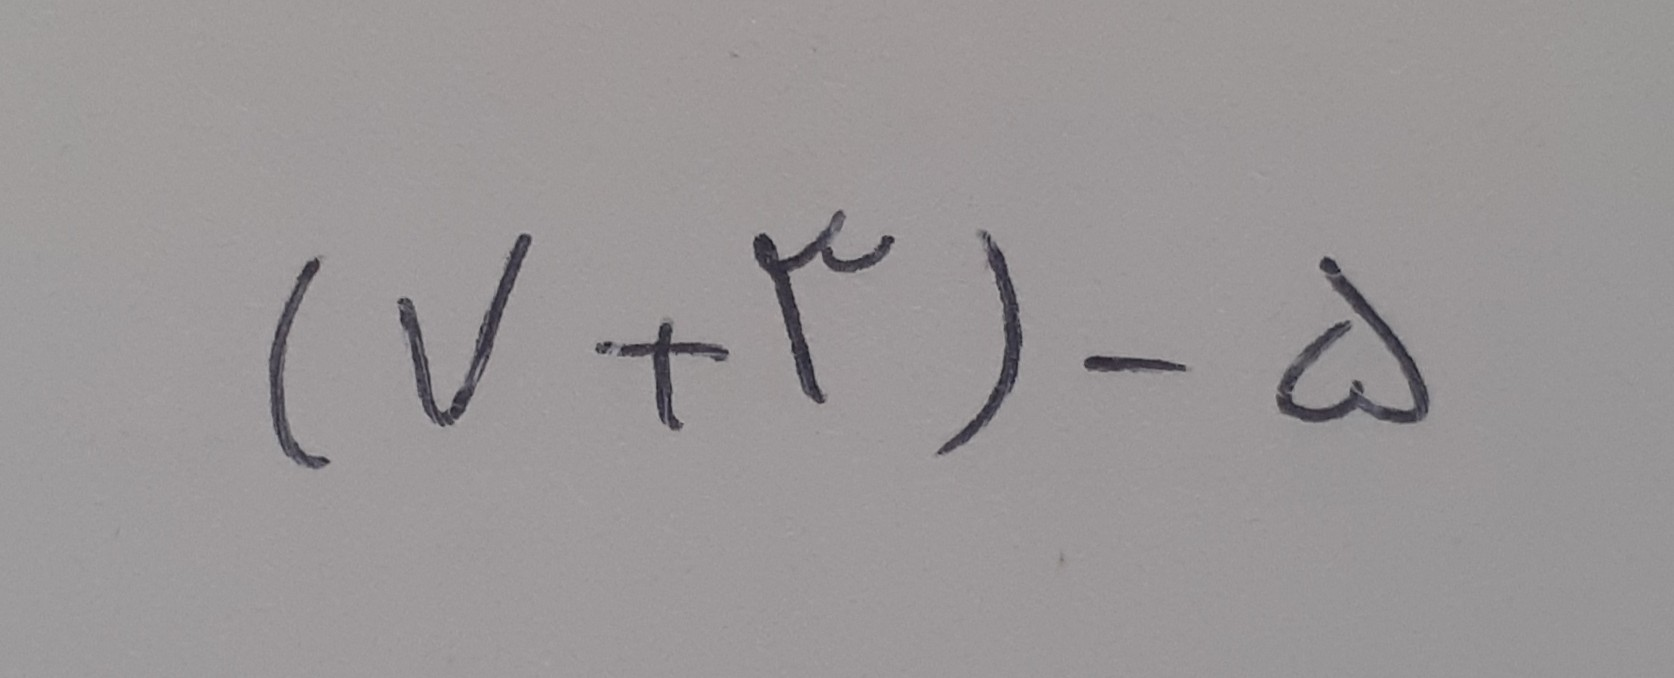 (۷ + ۳) - ۵